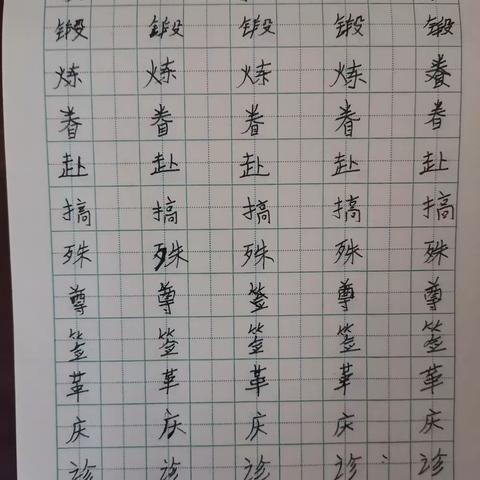 锻 锻 锻 锻 锻
炼 炼 炼 炼
眷 眷 眷 眷 眷
赴 赴 赴 赴 赴
搞 搞 搞 搞 搞
殊 殊 殊 殊 殊
尊 尊 签 尊 尊
签 签 签 签 签
革 革 革 革 革
庆 庆 庆 庆 庆
诊 诊 诊 诊 诊